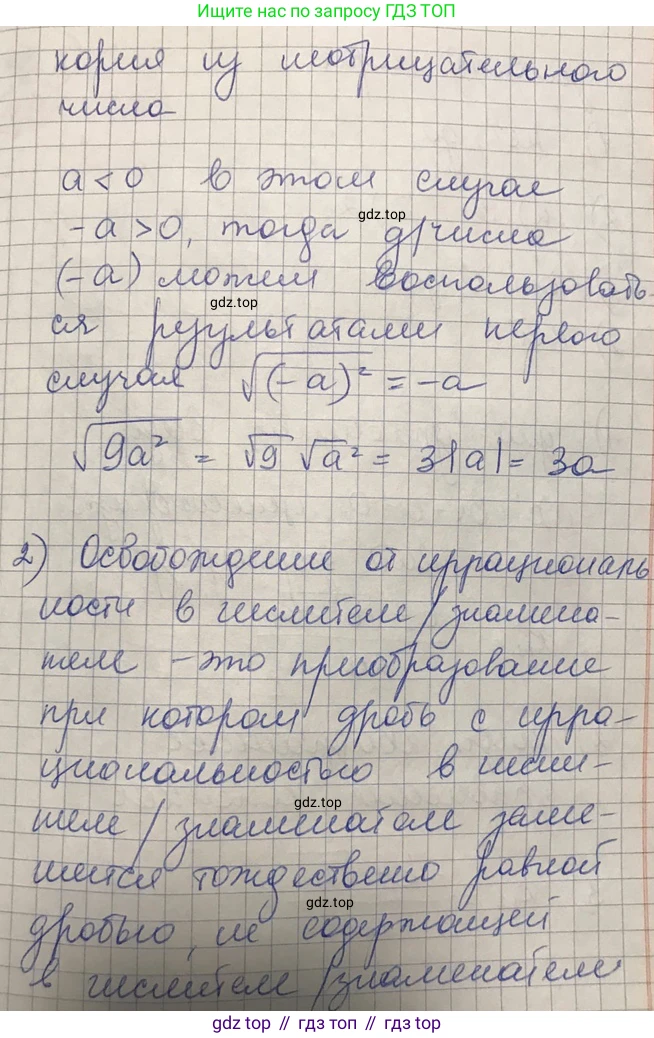 Ищите нас по запросу ГДЗ ТОП
корня из неотрицательного
числа
a < 0 в этом случае
-a > 0, тогда д/числа
gdz.top
(-a) можем воспользовать-
gdz.top
ся результатами первого
случая √(-a)² = -a
√9a² = √9 √a² = 3|a| = 3a
2) Освобождение от иррациональ
ности в числителе/знамена-
теле - это преобразование
при котором дробь с ирра-
циональностью в числи-
gdz.top
теле/знаменателе заме-
няется тождественно равной
gdz.top
дробью, не содержащей
в числителе/знаменателе
gdz top // гдз топ // gdz top